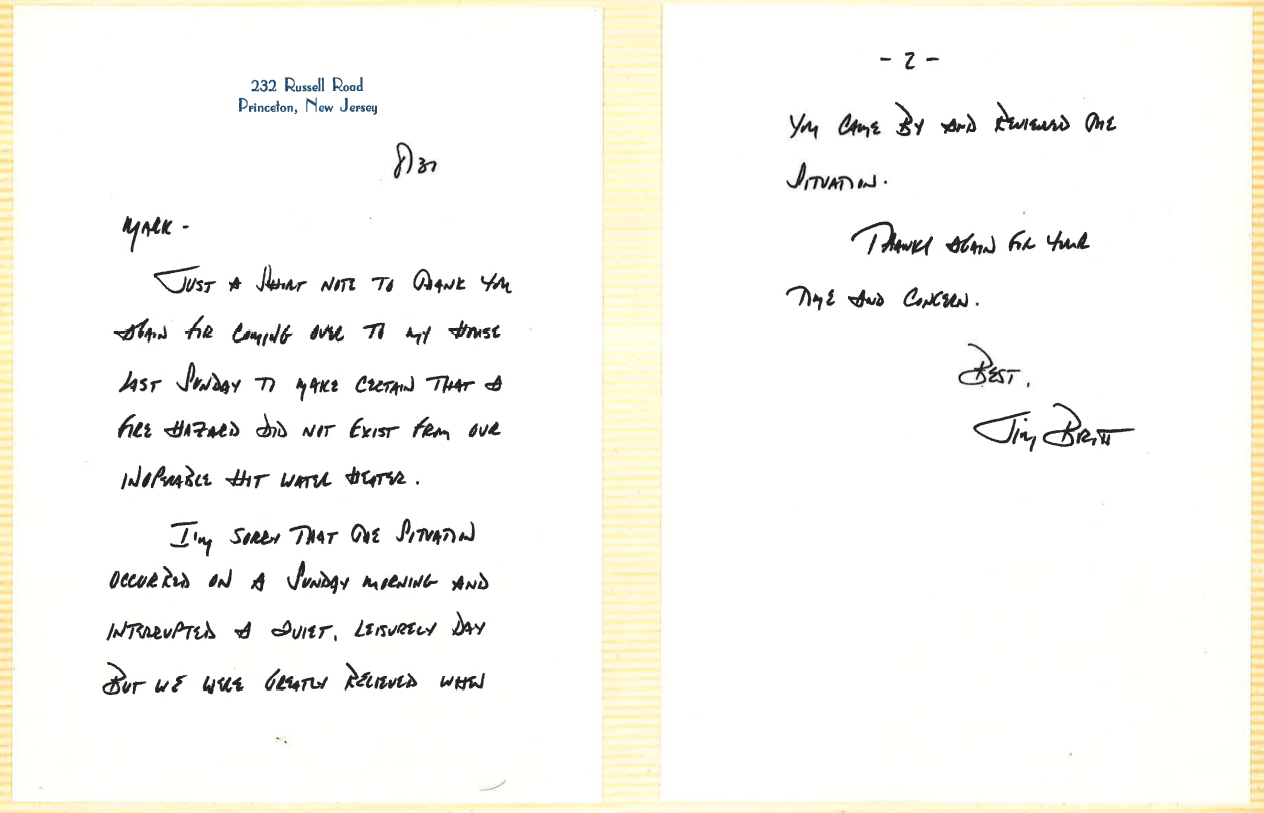 232 Russell Road
Princeton, New Jersey
MARK -
JUST A SHORT NOTE TO THANK YOU
AGAIN FOR COMING OVER TO MY HOUSE
LAST SUNDAY TO MAKE CERTAIN THAT A
FIRE HAZARD DID NOT EXIST FROM OUR
INOPERABLE HOT WATER HEATER.
I'M SORRY THAT THE SITUATION
OCCURRED ON A SUNDAY MORNING AND
INTERRUPTED A QUIET, LEISURELY DAY
BUT WE WERE GREATLY RELIEVED WHEN
- 2 -
YOU CAME BY AND REVIEWED THE
SITUATION.
THANKS AGAIN FOR YOUR
TIME AND CONCERN.
BEST,
JIM BRITT